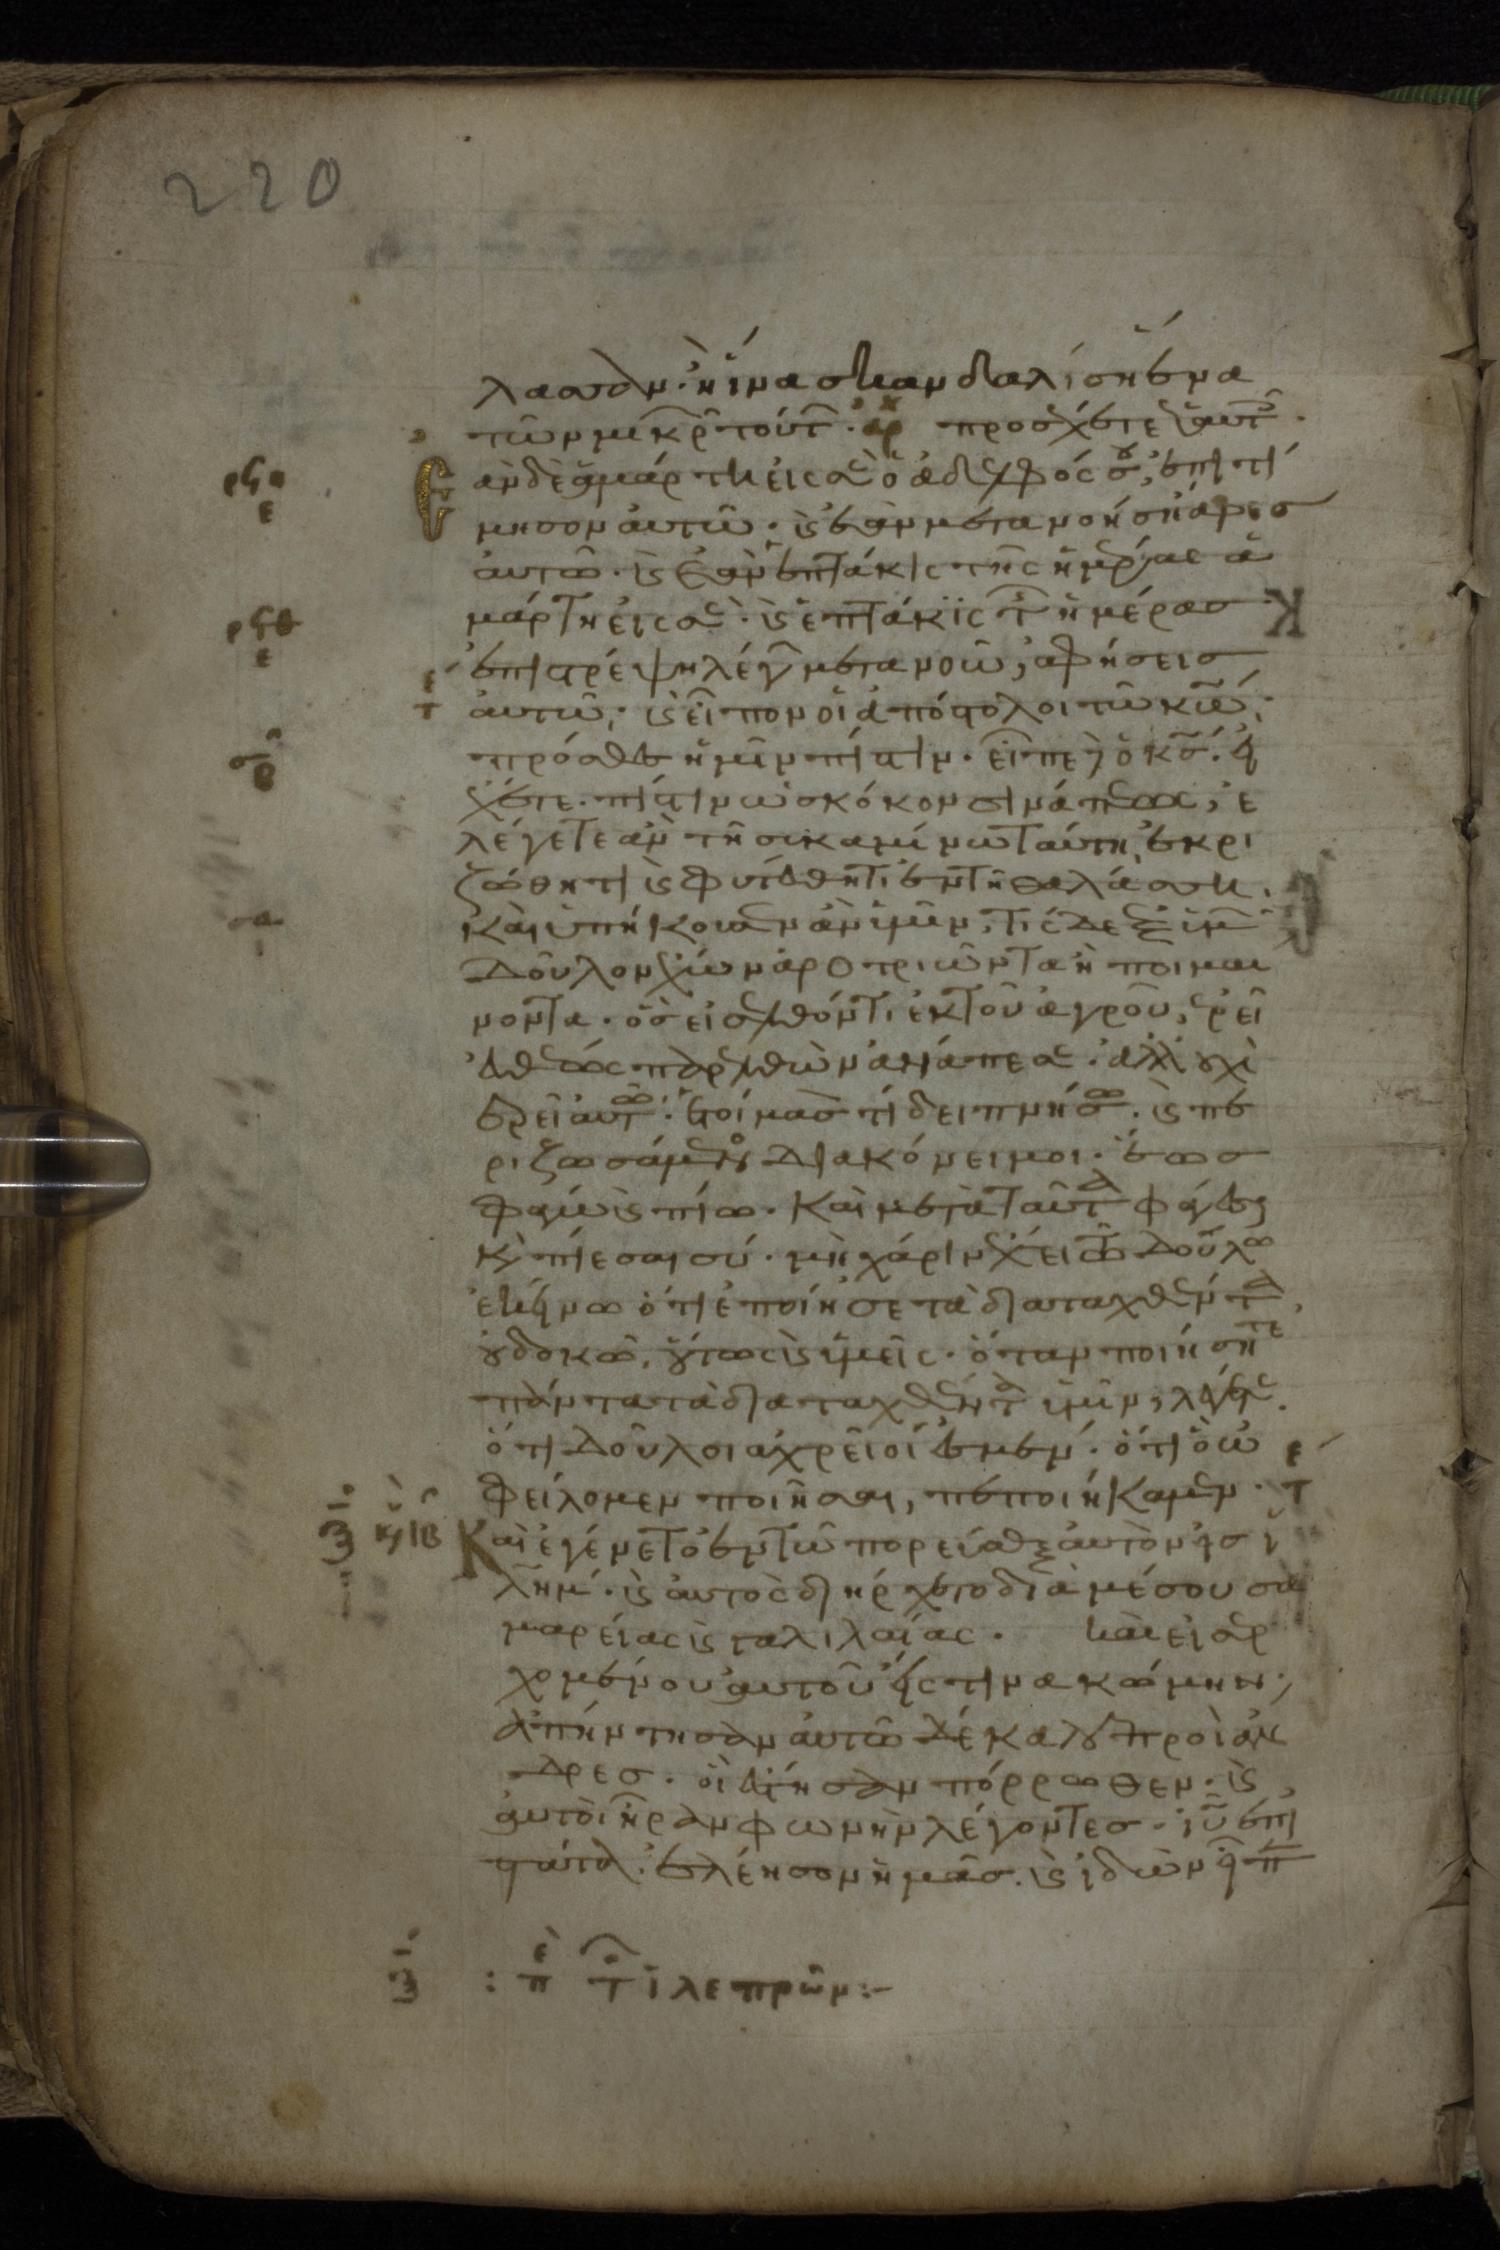 220
λασσαν· ἢ ἵνα σκανδαλίση ἕνα
τῶν μικρ τούτ· ἀρ προσέχετε ἑαυτ·
ρϟη
ε
ἐὰν δὲ ἁμάρτη εἰς σὲ ὁ ἀδελφός σου, ἐπιτί
μησον αὐτῶ· κ ἐὰν μετανοήση ἄφες
αὐτῶ· κ ἐὰν ἑπτάκις τῆς ἡμέρας ἁ
ρϟθ
ε
μάρτη εἰς σὲ· κ ἑπτάκις τ ἡμέρας
ἐπιστρέψη λέγ μετανοῶ, ἀφήσεις
τε
αὐτῶ· κ εἶπον οἱ ἀπόστολοι τῶ κω·
σ
β
πρόσθες ἡμῖν πίστιν· εἶπε δ ὁ κσ· εἰ
ἔχετε πίστιν ὡς κόκον σινάπεως, ἐ
λέγετε ἂν τῆ συκαμίνω ταύτη, ἐκρι
ζώθητι κ φυτεύθητι ἐν τῆ θαλάσση,
σα
καὶ ὑπήκουσεν ἂν ὑμῖν, τίς δὲ ἐξ ὑμ
δοῦλον ἔχων ἀροτριῶντα ἢ ποιμαι
νοντα· ὃς εἰσελθόντι ἐκ τοῦ ἀγροῦ, ἐρεῖ
εὐθέως παρελθὼν ἀνάπεσε· ἀλλ οὐχὶ
ἐρεῖ αὐτῶ· ἑτοίμασ τί δειπνήσω· κ πε
ριζωσάμενος διακόνει μοι· ἕως
φάγω κ πίω· καὶ μετὰ ταῦτα φάγεσαι
κ πίεσαι σύ· μὴ χάριν ἔχει τῶ δούλω
ἐκείνω ὅτι ἐποίησε τὰ διαταχθέντα,
οὐ δοκῶ, οὕτως κ ὑμεῖς· ὅταν ποιήσητε
πάντα τὰ διαταχθέντα ὑμῖν, λέγετε·
ὅτι δοῦλοι ἀχρεῖοί ἐσμεν· ὅτι ὃ ὠ
φείλομεν ποιῆσαι, πεποιήκαμεν· τε
κυ ιβ
Καὶ ἐγένετο ἐν τῶ πορεύεσθαι αὐτὸν εἰς ι
λημ· κ αὐτὸς διήρχετο διὰ μέσου σα
μαρείας κ γαλιλαίας· καὶ εἰσερ
χομένου αὐτοῦ εἴς τινα κώμην,
ἀπήντησαν αὐτῶ δέκα λεπροὶ ἄν
δρες· οἳ ἔστησαν πόρρωθεν· κ
αὐτοὶ ἦραν φωνὴν λέγοντες· ιῦ ἐπι
στάτα ἐλέησον ἡμᾶς· κ ἰδὼν εἶπ
: πε τ ι λεπρῶν:-